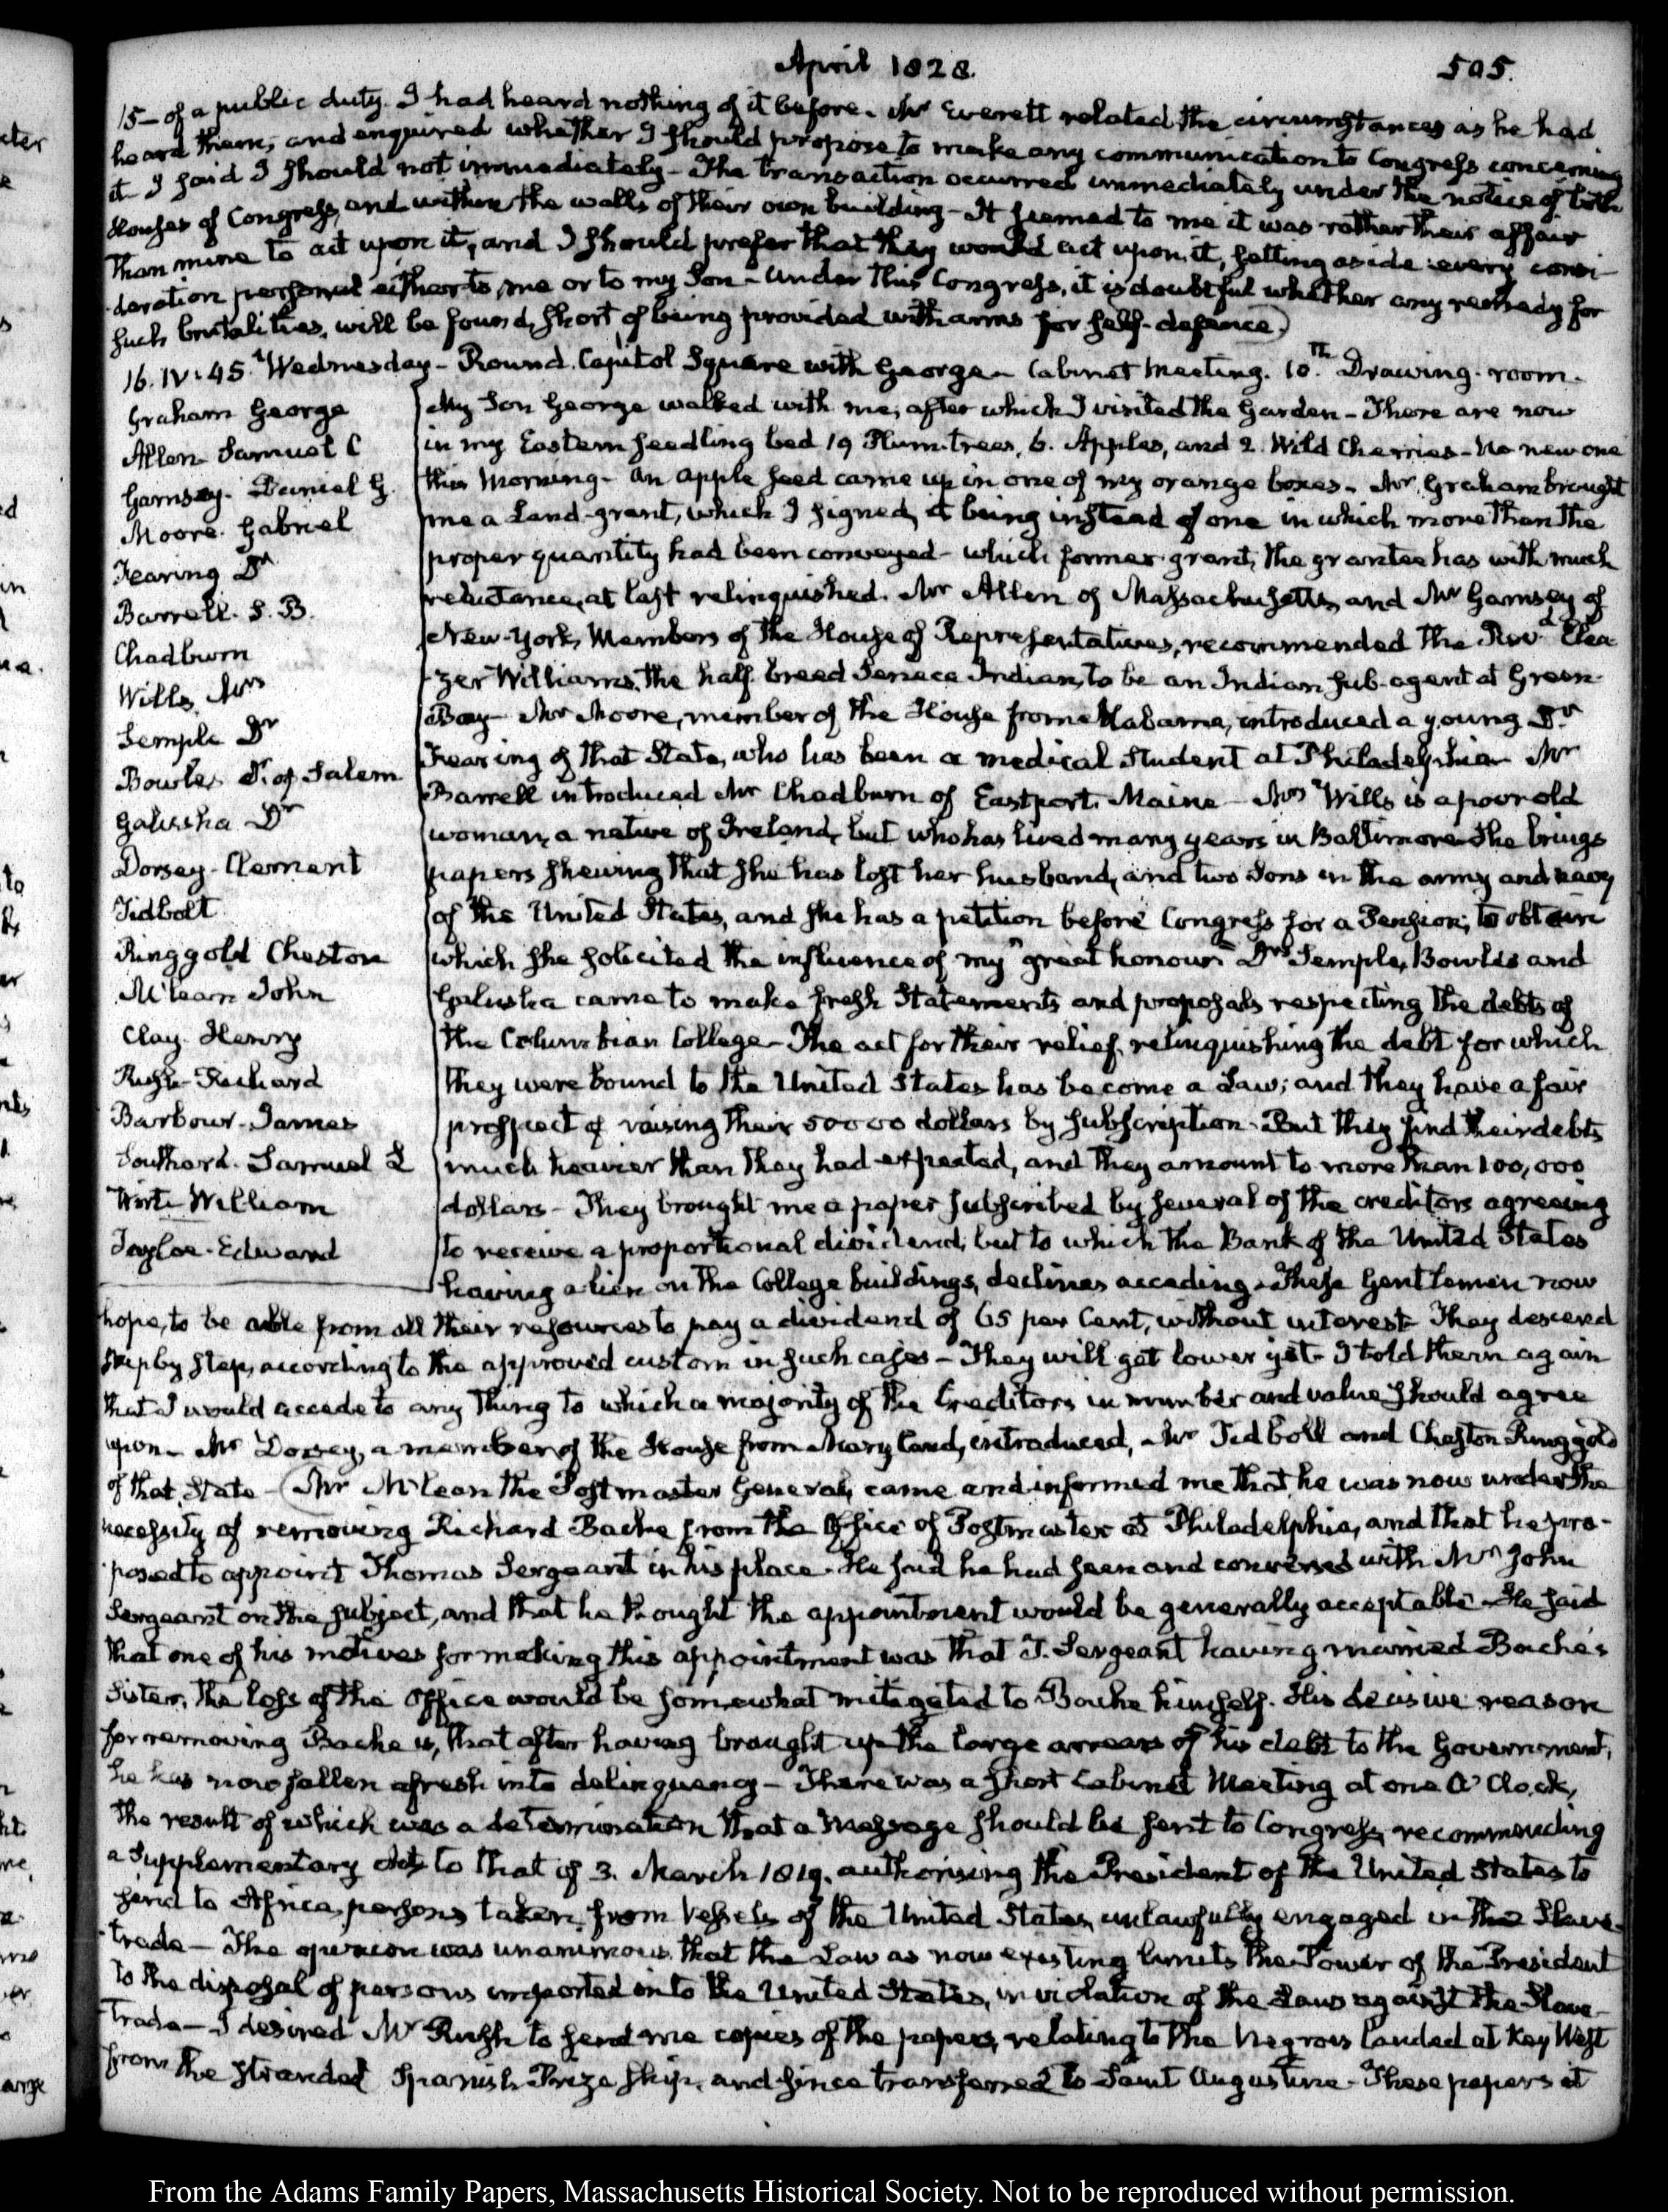 April 1828.
505.
15— of a public duty. I had heard nothing of it before. Mr Everett related the circumstances as he had
heard them, and enquired whether I should propose to make any communication to Congress concerning
it I said I should not immediately— The transaction occurred immediately under the notice of both
Houses of Congress, and within the walls of their own building— It seemed to me it was rather their affair
than mine to act upon it, and I should prefer that they would act upon it, setting aside every consi-
deration personal either to me or to my Son— Under this Congress, it is doubtful whether any remedy for
such brutalities, will be found, short of being provided with arms for self-defence.)
16. IV:45. Wednesday— Round Capitol Square with George— Cabinet Meeting. 10th. Drawing-room.
Graham George
Allen Samuel C
Garnsey. Daniel G.
Moore. Gabriel
Fearing Dr
Barrell. S. B.
Chadburn
Wills. Mrs
Semple Dr
Bowles Dr. of Salem
Galusha Dr
Dorsey. Clement
Tidball
Ringgold Cheston
McLean John
Clay. Henry
Rush. Richard
Barbour. James
Southard. Samuel L
Wirt. William
Tayloe. Edward
My Son George walked with me, after which I visited the Garden— There are now
in my Eastern seedling bed 19 Plum-trees, 6. Apples, and 2. Wild Cherries— No new one
this Morning— An apple seed came up in one of my orange boxes— Mr Graham brought
me a Land-grant, which I signed, it being instead of one in which more than the
proper quantity had been conveyed— which former grant, the grantee has with much
reluctance, at last relinquished. Mr Allen of Massachusetts, and Mr Garnsey of
New-York, Members of the House of Representatives, recommended the Revd. Elea-
zer Williams, the half breed Seneca Indian, to be an Indian sub-agent at Green-
Bay— Mr Moore, member of the House from Alabama, introduced a young Dr
Fearing of that State, who has been a medical student at Philadelphia— Mr
Barrell introduced Mr Chadburn of Eastport. Maine— Mrs Wills is a poor old
woman, a native of Ireland, but who has lived many years in Baltimore— She brings
papers shewing that she has lost her husband, and two Sons in the army and navy
of the United States, and she has a petition before Congress for a Pension; to obtain
which she solicited the influence of my "great honour" Drs Semple, Bowles and
Galusha came to make fresh statements and proposals respecting the debts of
the Columbian College— The act for their relief, relinquishing the debt for which
they were bound to the United States has become a Law; and they have a fair
prospect of raising their 50000 dollars by subscription. But they find their debts
much heavier than they had expected, and they amount to more than 100,000
dollars— They brought me a paper subscribed by several of the creditors agreeing
to receive a proportional dividend, but to which the Bank of the United States
having a lien on the College buildings, declines acceding. These Gentlemen now
hope, to be able from all their resources to pay a dividend of 65 per Cent, without interest— They descend
step by step, according to the approved custom in such cases— They will get lower yet— I told them again
that I would accede to any thing to which a majority of the Creditors in number and value should agree
upon— Mr Dorsey, a member of the House from Maryland, introduced, Mr Tidball and Cheston Ringgold
of that State— (Mr McLean the Postmaster General, came and informed me that he was now under the
necessity of removing Richard Bache from the Office of Postmaster at Philadelphia, and that he pro-
posed to appoint Thomas Sergeant in his place. He said he had seen and conversed with Mr John
Sergeant on the subject, and that he thought the appointment would be generally acceptable— He said
that one of his motives for making this appointment was that T. Sergeant having married Bache's
Sister, the loss of the Office would be somewhat mitigated to Bache himself. His decisive reason
for removing Bache is, that after having brought up the large arrears of his debt to the Government,
he has now fallen afresh into delinquency— There was a short Cabinet Meeting at one O'Clock,
the result of which was a determination that a Message should be sent to Congress, recommending
a Supplementary Act to that of 3. March 1819. authorising the President of the United States to
send to Africa, persons taken from Vessels of the United States, unlawfully engaged in the Slave-
trade— The opinion was unanimous that the Law as now existing limits the Power of the President
to the disposal of persons imported into the United States, in violation of the Laws against the Slave-
trade— I desired Mr Rush to send me copies of the papers, relating to the Negroes landed at Key West
from the stranded Spanish Prize ship, and since transferred to Saint Augustine— These papers it
From the Adams Family Papers, Massachusetts Historical Society. Not to be reproduced without permission.